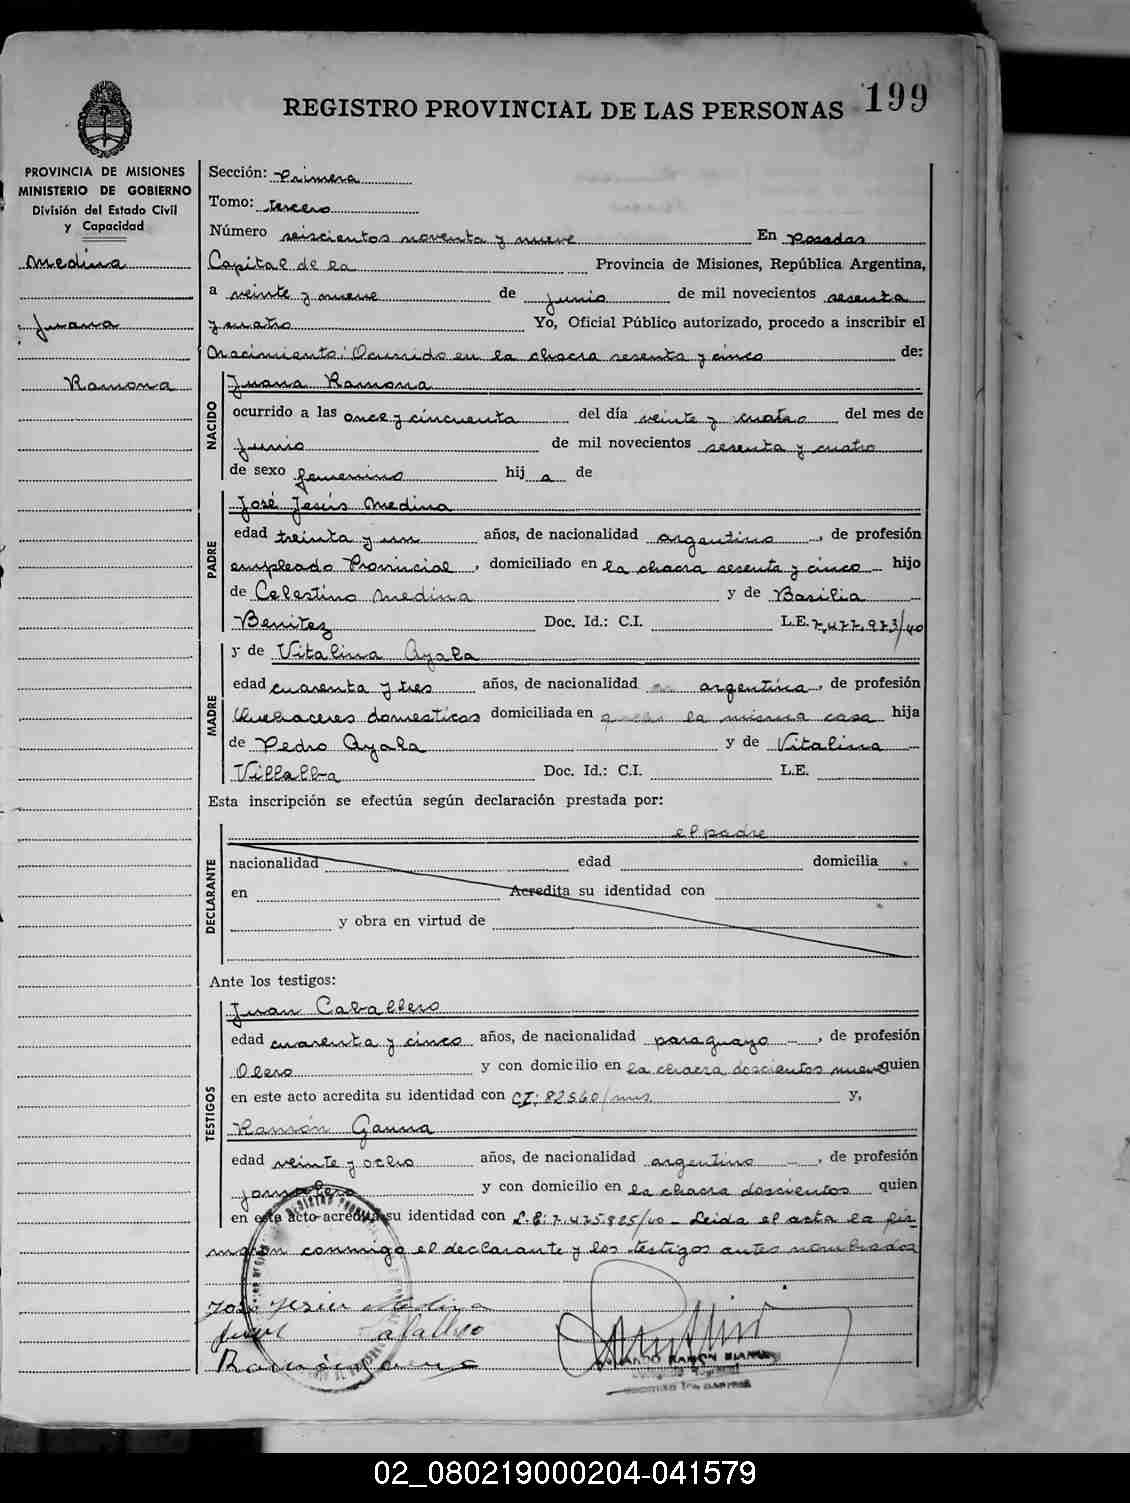 REGISTRO PROVINCIAL DE LAS PERSONAS 199
PROVINCIA DE MISIONES
MINISTERIO DE GOBIERNO
División del Estado Civil
y Capacidad
Medina
Juana
Ramona
Sección: Primera
Tomo: tercero
Número seiscientos noventa y nueve En Posadas
Capital de la Provincia de Misiones, República Argentina,
a veinte y nueve de junio de mil novecientos sesenta
y cuatro Yo, Oficial Público autorizado, procedo a inscribir el
Nacimiento: Ocurrido en la chacra sesenta y cinco de:
NACIDO
Juana Ramona
ocurrido a las once y cincuenta del día veinte y cuatro del mes de
junio de mil novecientos sesenta y cuatro
de sexo femenino hij a de
PADRE
José Jesús Medina
edad treinta y un años, de nacionalidad argentino, de profesión
empleado Provincial, domiciliado en la chacra sesenta y cinco hijo
de Celestino Medina y de Basilia
Benitez Doc. Id.: C.I. L.E. 7.477.973/40
MADRE
y de Vitalina Ayala
edad cuarenta y tres años, de nacionalidad argentina, de profesión
Quehaceres domesticos domiciliada en la misma casa hija
de Pedro Ayala y de Vitalina
Villalba Doc. Id.: C.I. L.E.
Esta inscripción se efectúa según declaración prestada por:
DECLARANTE
el padre
nacionalidad edad domicilia
en Acredita su identidad con
y obra en virtud de
Ante los testigos:
TESTIGOS
Juan Caballero
edad cuarenta y cinco años, de nacionalidad paraguayo, de profesión
Olero y con domicilio en la chacra doscientos nueve quien
en este acto acredita su identidad con CI: 82560/mns. y,
Ramón Gauna
edad veinte y ocho años, de nacionalidad argentino, de profesión
jornalero y con domicilio en la chacra doscientos quien
en este acto acredita su identidad con L.E. 7.475.825/40 - Leida el acta la fir-
maron conmigo el declarante y los testigos antes nombrados
José Jesus Medina
Juan Caballero
Ramón Gauna
RAMON
02_080219000204-041579